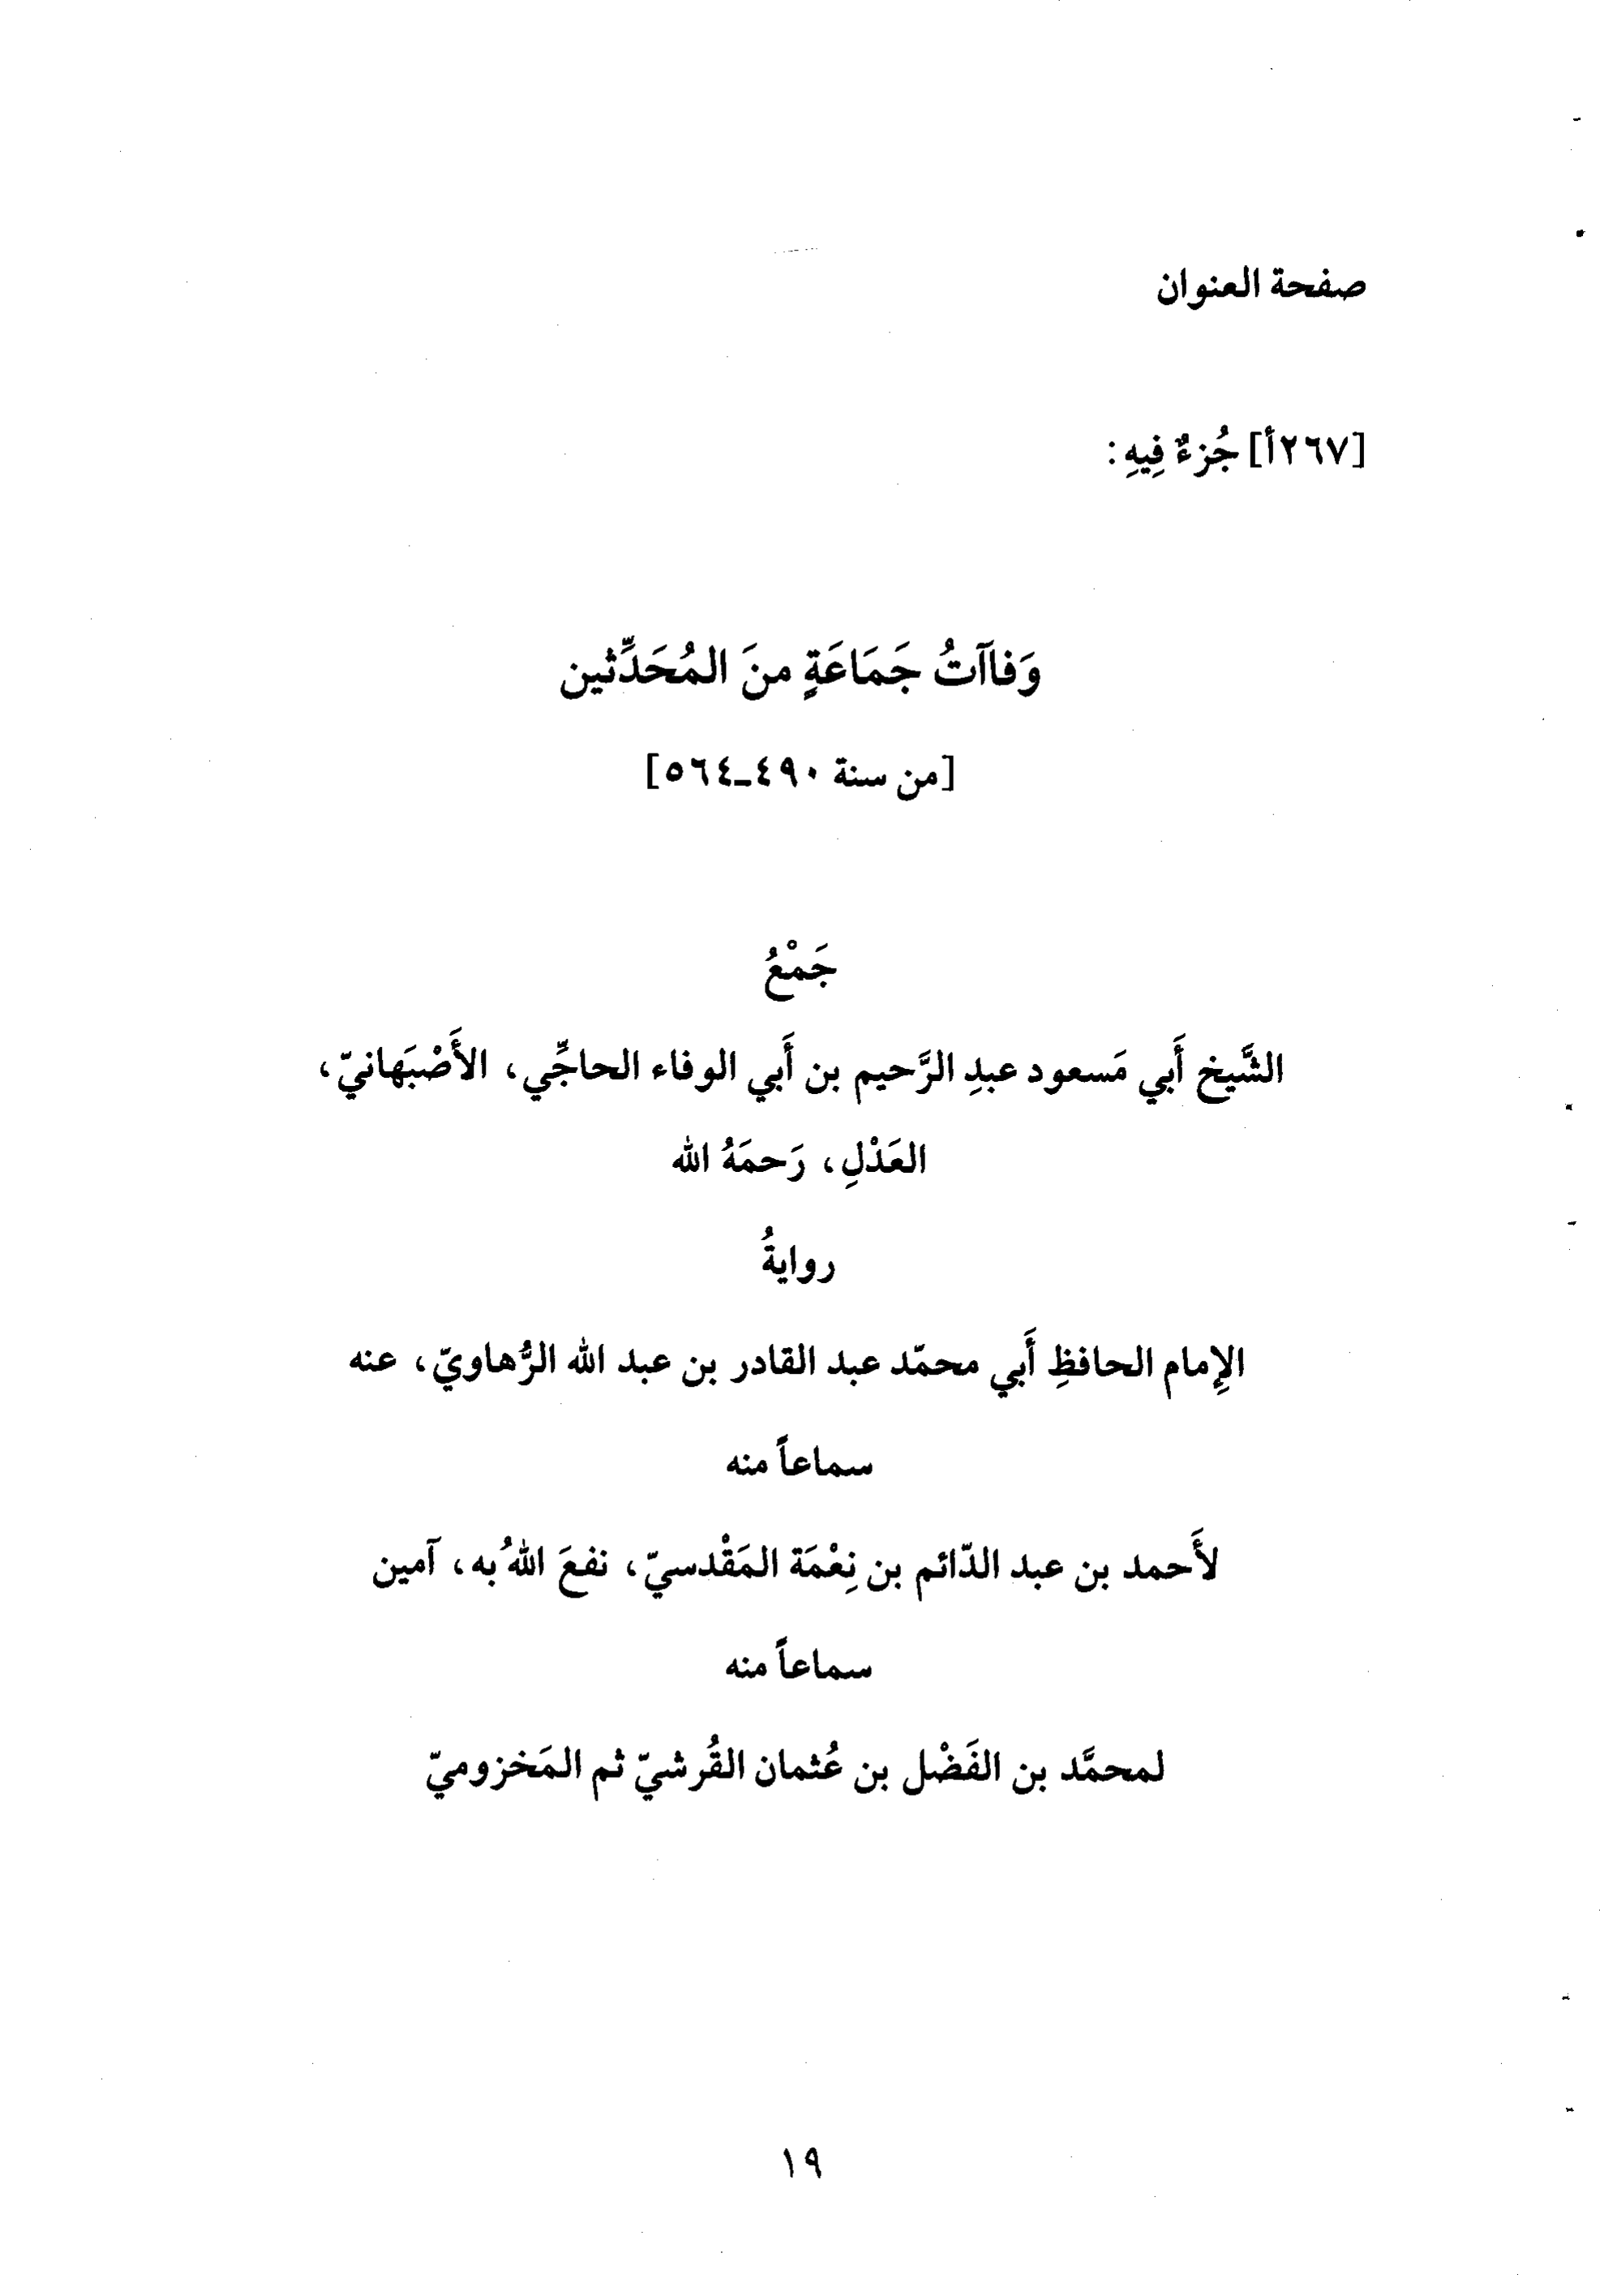 صفحة العنوان
[٢٦٧أ] جُزءٌ فِيهِ:
وَفاآتُ جَمَاعَةٍ منَ المُحَدِّثين
[من سنة ٤٩٠ـ٥٦٤]
جَمْعُ
الشَّيخ أَبي مَسعود عبدِ الرَّحيم بن أَبي الوفاء الحاجِّي، الأَصْبَهانيّ،
العَدْلِ، رَحمَهُ الله
روايةُ
الإِمام الحافظِ أَبي محمّد عبد القادر بن عبد الله الرُّهاويّ، عنه
سماعاً منه
لأَحمد بن عبد الدّائم بن نِعْمَة المَقْدسيّ، نفعَ اللهُ به، آمين
سماعاً منه
لمحمَّد بن الفَضْل بن عُثمان القُرشيّ ثم المَخزوميّ
١٩